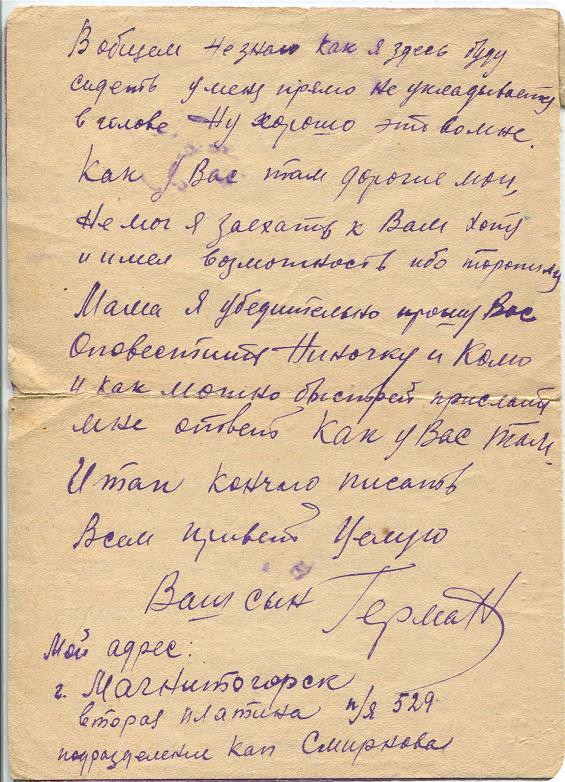 В общем не знаю как я здесь буду
сидеть у меня прямо не укладывается
в голове Ну хорошо это во мне.
Как у Вас там дорогие мои,
Не мог я заехать к Вам хоту
и имел возможность ибо торопился
Мама я убедительно прошу Вас
Оповестить Ниночку и Комо
и как можно быстрей прислать
мне ответ Как у Вас там.
Итак кончаю писать
Всем привет Целую
Ваш сын Герман
Мой адрес:
г. Магнитогорск
вторая платина п/я 529
подразделение кап Смирнова